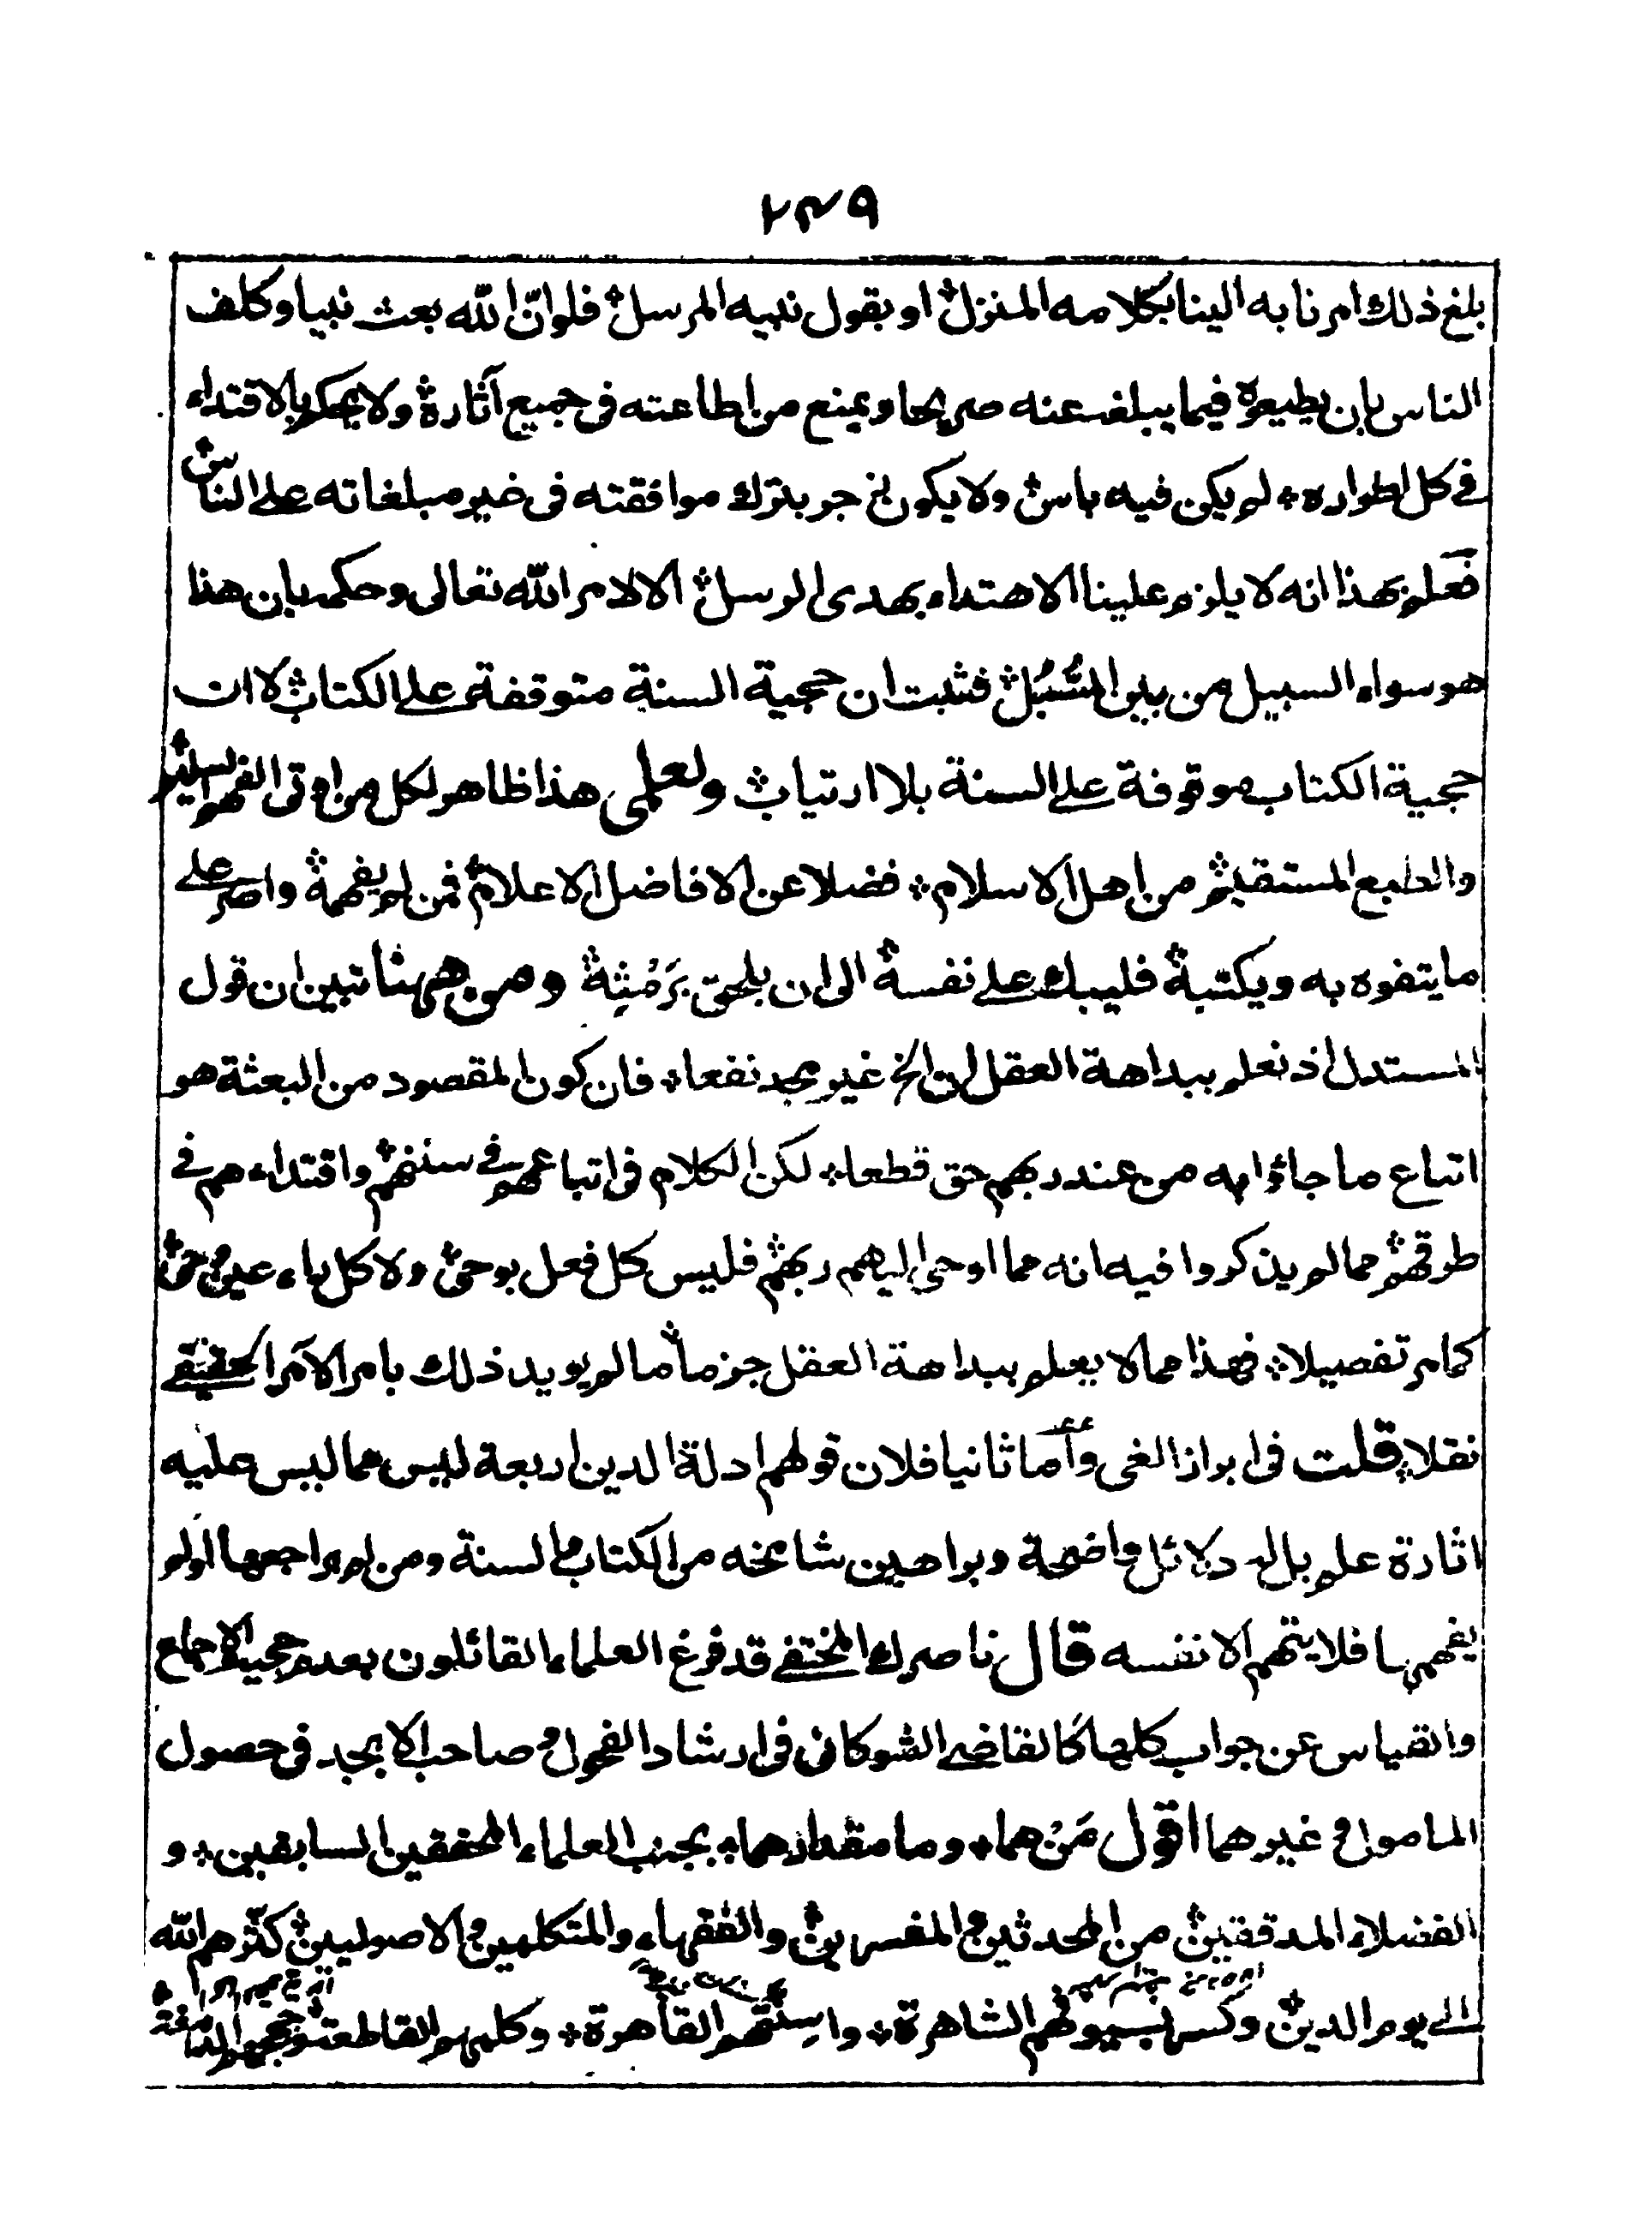 ٢٣٩
بلغ ذلك امرنا به الينا بكلامه المنزل؞ او بقول نبيه المرسل؞ فلو انّ الله بعث نبيا وكلف
الناس بان يطيعوه فيما يبلغ عنه صريحا ويمنع من اطاعته فى جميع آثاره؞ ولا يحكم بالاقتداء
فى كل اطواره؞ لم يكن فيه باس؞ ولا يكون زجر بترك موافقته فى غير مبلغاته على الناس؞
فعلم بهذا انه لا يلزم علينا الاهتداء بهدى الرسل؞ الا لامر الله تعالى وحكمه بان هذا
هو سواء السبيل من بين السُّبُل؞ فثبت ان حجية السنة متوقفة على الكتاب؞ لا ان
حجية الكتاب موقوفة على السنة بلا ارتياب؞ ولعلمى هذا ظاهر لكل من اوتى الفهم السليم؞
والطبع المستقيم؞ من اهل الاسلام؞ فضلا عن الافاضل الاعلام؞ فمن لم يفهمه؞ واصر على
ما يتفوه به ويكتبه؞ فليبك على نفسه؞ الى ان يلحق بِرَمْسِه؞ ومن ههنا تبين ان قول
المستدل اذ نعلم ببداهة العقل ان الخ غير مجد نفعا؞ فان كون المقصود من البعثة هو
اتباع ما جاؤا به من عند ربهم حق قطعا؞ لكن الكلام فى اتباعهم فى سننهم؞ واقتداءهم فى
طرقهم؞ مما لم يذكروا فيه انه مما اوحى اليهم ربهم؞ فليس كل فعل بوحى؞ ولا كل باء عين وحى؞
كما مر تفصيلا؞ فهذا مما لا يعلم ببداهة العقل جزما؞ ما لم يويد ذلك بامر الآمر الحقيقى
نقلا؞ قلت فى ابراز الغى وأما ثانيا فلان قولهم ادلة الدين اربعة ليس مما ليس عليه
اثارة علم بل له دلائل واضحة وبراهين شامخه من الكتاب والسنة ومن لم يراجعها او لم
يفهمها فلا يتهم الا نفسه قال ناصرك المختفى قد فرغ العلماء القائلون بعدم حجية الاجماع
والقياس عن جواب كلها كالقاضى الشوكانى فى ارشاد الفحول وصاحب الابجد فى حصول
المامول وغيرهما اقول مَنْ هما؞ وما مقدارهما؞ بجنب العلماء المحققين السابقين؞ و
الفضلاء المدققين؞ من المحدثين والمفسرين؞ والفقهاء والمتكلمين والاصوليين؞ كثّرهم الله
الى يوم الدين؞ وكسر بسيوفهم الشاهرة؞ واسنتهم القاهرة؞ وكلمهم القاطعة؞ وحججهم